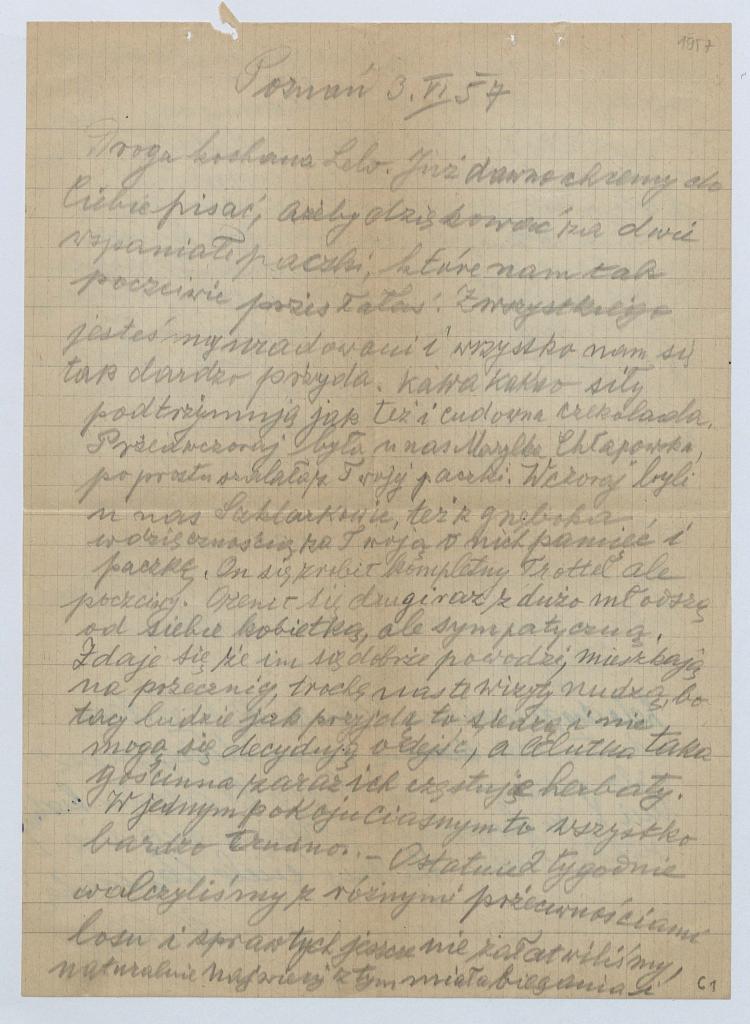 1957
Poznań 3.VI 57
Droga kochana Lelu. Już dawno chcemy do
Ciebie pisać, ażeby dziękować za dwie
wspaniałe paczki, które nam tak
poczciwie przesłałaś. Z wszystkiego
jesteśmy uradowani i wszystko nam się
tak bardzo przyda. Kawa kakao siły
podtrzymują jak też i cudowna czekolada.
Przedwczoraj była u nas Marylka Chłapowska,
po prostu szalała z Twojej paczki. Wczoraj byli
u nas też z głęboką
wdzięcznością za Twoją o nich pamięć i
paczkę. On się zrobił kompletny Trottel ale
poczciwy. Ożenił się drugi raz z dużo młodszą
od siebie kobietką, ale sympatyczną.
Zdaje się że im się dobrze powodzi, mieszkają
na przecznicy, trochę nas te wizyty nudzą, bo
tacy ludzie jak przyjdą to siedzą i nie
mogą się decydują odejść, a taka
gościnna zaraz ich częstuje herbaty.
W jednym pokoju ciasnym to wszystko
bardzo trudno. – Ostatnie 2 tygodnie
walczyliśmy z różnymi przeciwnościami
losu i spraw tych jeszcze nie załatwiliśmy,
naturalnie najwięcej z tym miała biegania i
C1